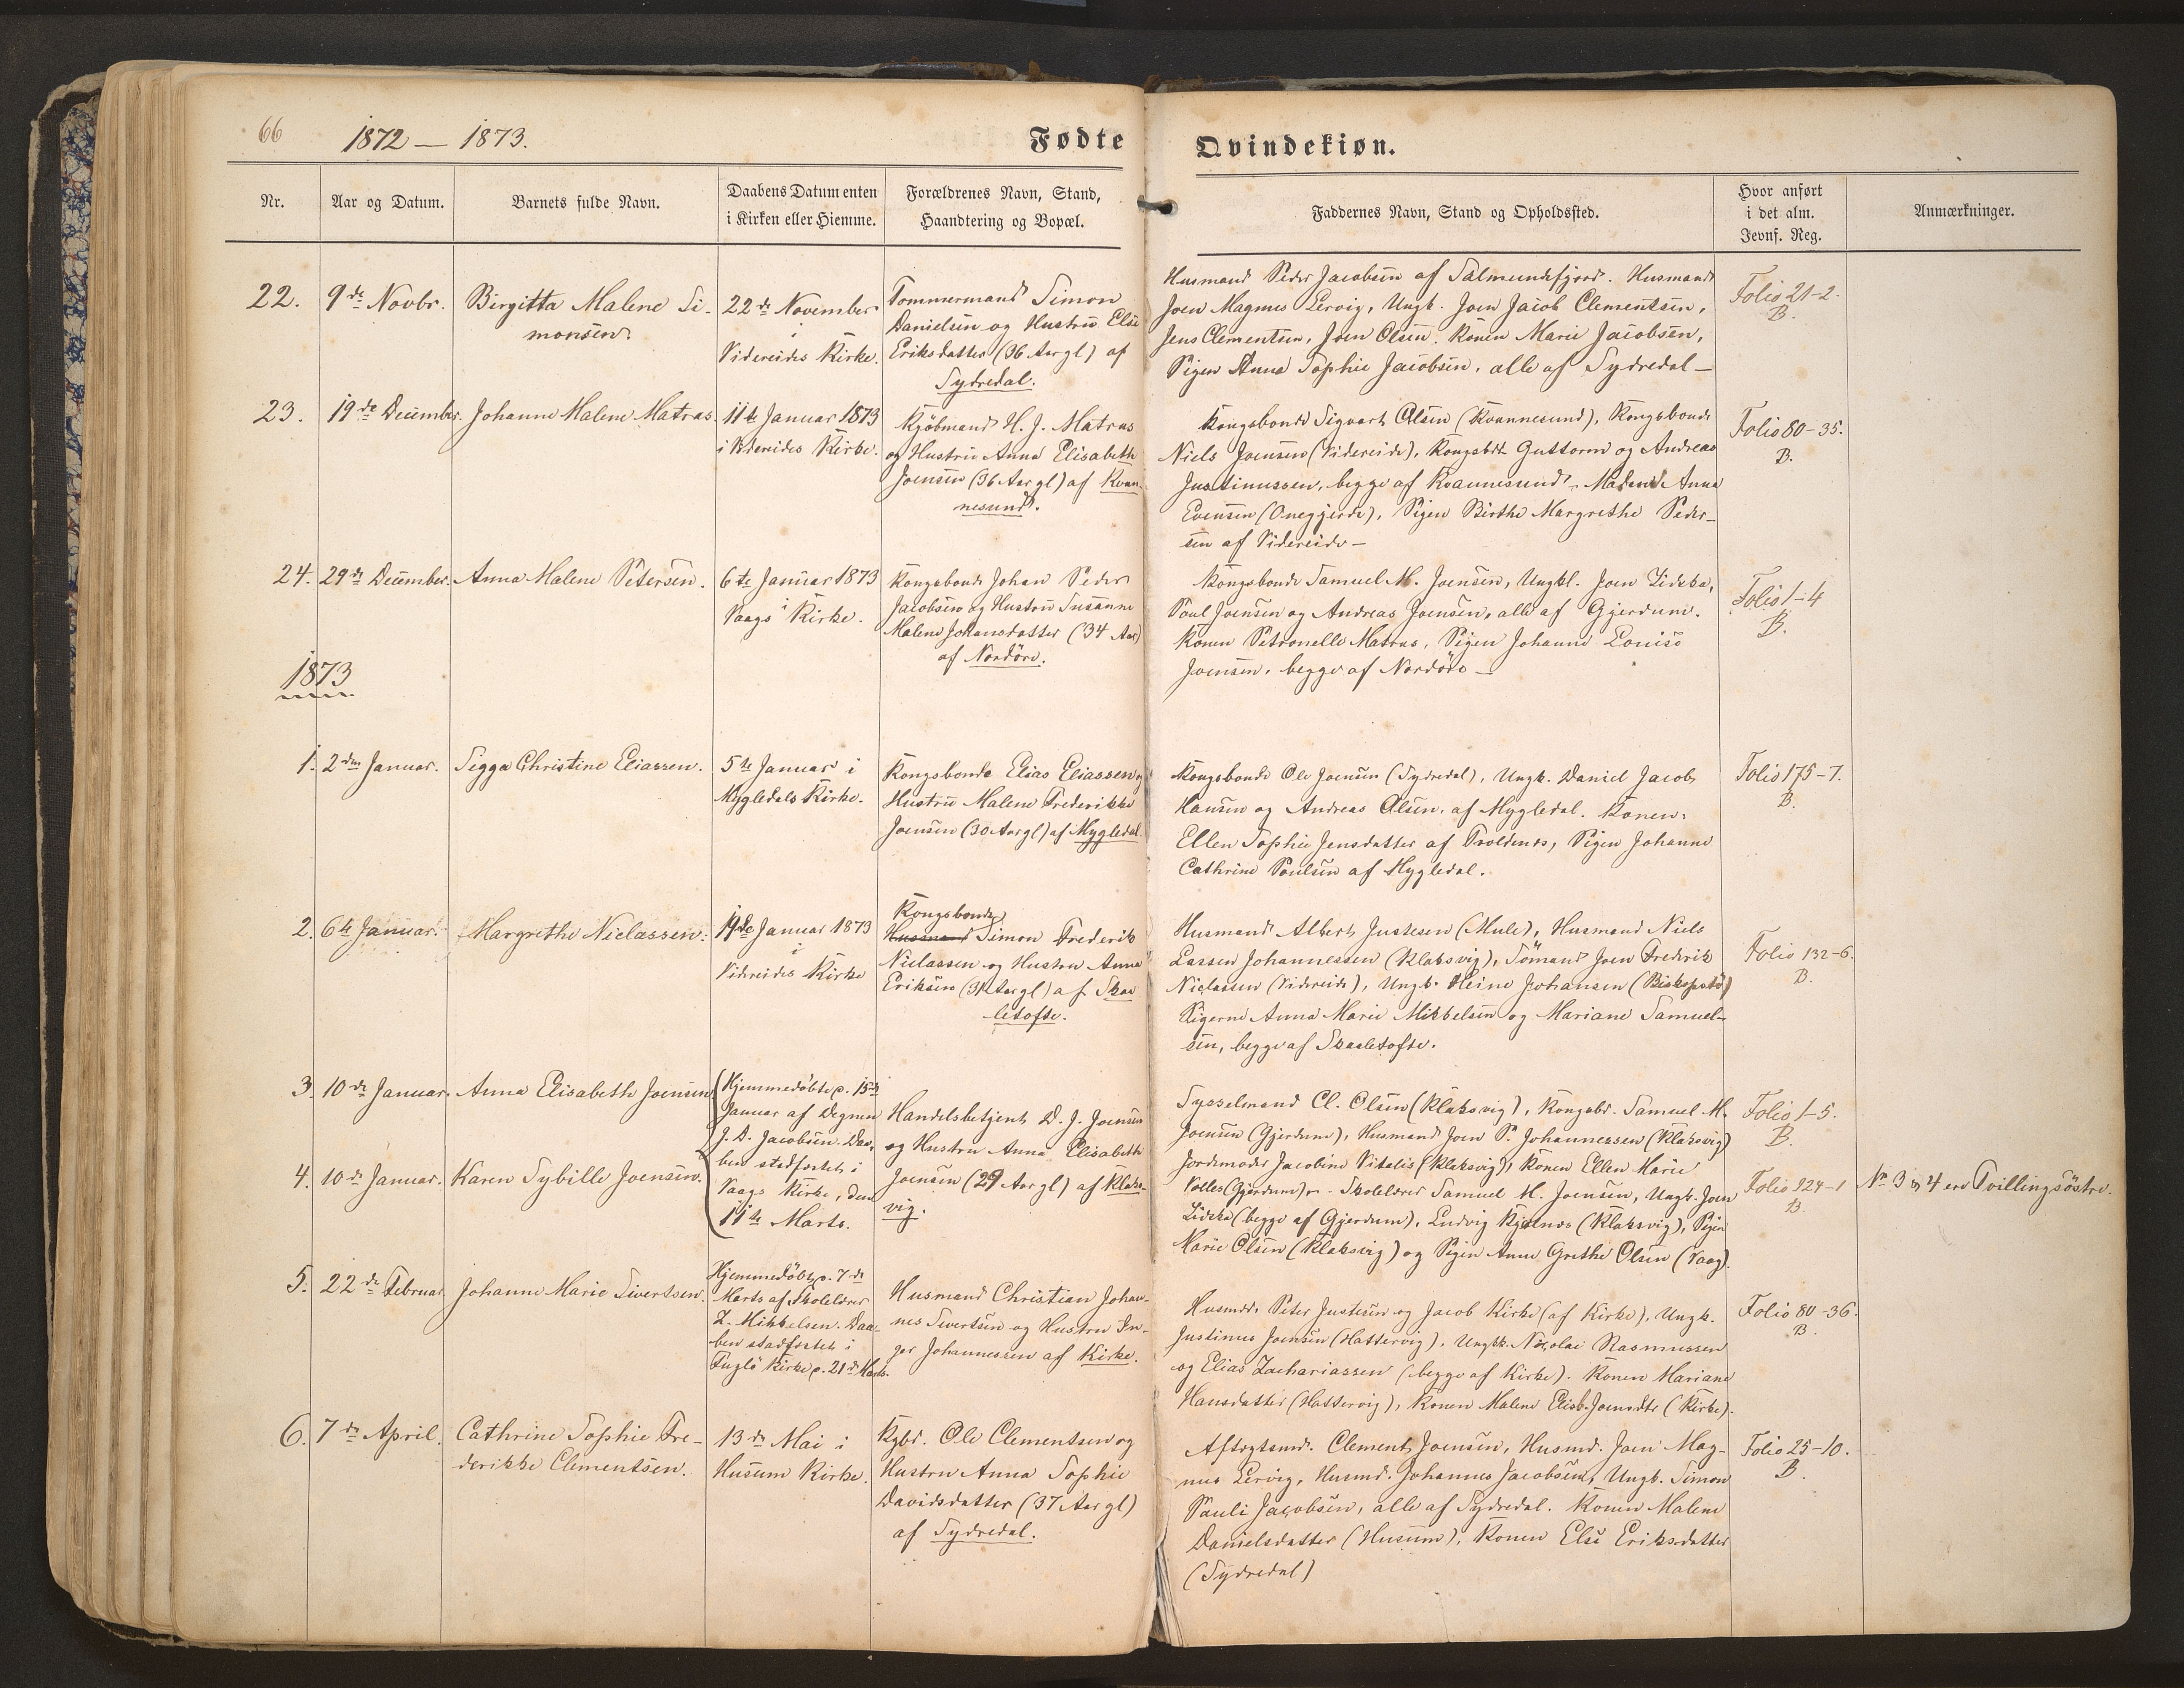 66
1872 — 1873.
Fødte
Qvindekiøn.
Nr.
Aar og Datum.
Barnets fulde Navn.
Daabens Datum enten
i Kirken eller Hiemme.
Forældrenes Navn, Stand,
Haandtering og Bopæl.
Faddernes Navn, Stand og Opholdssted.
Hvor anført
i det alm.
Jevnf. Reg.
Anmærkninger.
22.
9de Novbr.
Birgitta Malene Si-
monsen.
22de November
i
Videreides Kirke.
Tømmermand Simon
Danielsen og Hustru Else
Eriksdatter (36 Aar gl) af
Sydredal.
Husmand Peder Jacobsen af Salmundefjord. Husmand
Joen Magnus Lervig, Ungk. Joen Jacob Clementsen,
Jens Clementsen, Joen Olsen. Konen Marie Jacobsen,
Pigen Anna Sophie Jacobsen, alle af Sydredal —
Folio 21-2.
B.
23.
19de December.
Johanne Malene Matras.
11te Januar 1873
i Videreides Kirke.
Kjøbmand H. J. Matras
og Hustru Anna Elisabeth
Joensen (36 Aar gl) af Kvan-
nesund.
Kongsbonde Sigvart Olsen (Kvannesund), Kongsbonde
Niels Joensen (Videreide), Kongsbdr. Guttorm og Andreas
Justinussen, begge af Kvannesund. Madame Anna
Evensen (Onegjerde), Pigen Birthe Margrethe Peder-
sen af Videreide —
Folio 80-35.
B.
24.
29de December.
Anna Malene Petersen.
6te Januar 1873
i
Vaags Kirke.
Kongsbonde Johan Peder
Jacobsen og Hustru Susanne
Malene Johansdatter (34 Aar)
af Nordöre.
Kongsbonde Samuel M. Joensen, Ungkl. Joen Lidska,
Poul Joensen og Andreas Joensen, alle af Gjerdum.
Konen Petronelle Matras, Pigen Johanne Louise
Joensen, begge af Nordöre —
Folio 1-4
B.
1873
1.
2den Januar.
Sigga Christine Eliassen.
5te Januar i
Mygledals Kirke.
Kongsbonde Elias Eliassen og
Hustru Malene Frederikke
Joensen (30 Aar gl) af Mygledal.
Kongsbonde Ole Joensen (Sydredal), Ungk. Daniel Jacob
Hansen og Andreas Olsen, af Mygledal. Konen
Ellen Sophie Jensdatter af Troldenes, Pigen Johanne
Cathrine Poulsen af Mygledal.
Folio 175-7.
B.
2.
6te Januar.
Margrethe Niclassen.
19de Januar 1873
i
Videreides Kirke
Kongsbonde
Husmand Simon Frederik
Niclassen og Hustru Anna
Eriksen (31 Aar gl) af Skaa-
letofte.
Husmand Albert Justesen (Mule), Husmand Niels
Lassen Johannessen (Klaksvig), Sömand Joen Frederik
Niclassen (Videreide), Ungk. Heine Johansen (Biskopstö)
Pigerne Anna Marie Mikkelsen og Mariane Samuel-
sen, begge af Skaaletofte.
Folio 132-6.
B.
3.
10de Januar.
Anna Elisabeth Joensen
Hjemmedöbte d. 15de
Januar af Degnen
J. D. Jacobsen. Daa-
ben stadfæstet i
Vaags Kirke, den
11te Marts.
Handelsbetjent D. J. Joensen
og Hustru Anna Elisabeth
Joensen (29 Aar gl) af Klaks-
vig.
Sysselmand Cl. Olsen (Klaksvig), Kongsbd. Samuel M.
Joensen (Gjerdum), Husmand Joen P. Johannessen (Klaksvig)
Jordemoder Jacobine Vitalis (Klaksvig), Konen Ellen Marie
Volles (Gjerdum) — Skolelærer Samuel M. Joensen, Ungk. Joen
Lidska (begge af Gjerdum), Ludvig Kjølnes (Klaksvig), Pigen
Marie Olsen (Klaksvig) og Pigen Anne Grethe Olsen (Vaag).
Folio 1-5.
B.
4.
10de Januar.
Karen Sybille Joensen.
Folio 224-1
B.
No 3 og 4 ere Tvillingsöstre.
5.
22de Februar
Johanne Marie Sivertsen.
Hjemmedöbt d. 7de
Marts af Skolelærer
Z. Mikkelsen. Daa-
ben stadfæstet i
Fuglö Kirke d. 21de Marts.
Husmand Christian Johan-
nes Sivertsen og Hustru In-
ger Johannessen af Kirke.
Husmd. Peter Justesen og Jacob Kirke (af Kirke), Ungk.
Justinus Joensen (Hattervig), Ungk. Nicolai Rasmussen
og Elias Zachariassen (begge af Kirke). Konen Mariane
Hansdatter (Hattervig), Konen Malene Elisb. Joensdtr (Kirke).
Folio 80-36.
B.
6.
7de April.
Cathrine Sophie Fre-
derikke Clementsen.
13de Mai i
Husum Kirke.
Kgbd. Ole Clementsen og
Hustru Anna Sophie
Davidsdatter (37 Aar gl)
af Sydredal.
Aftægtsmd. Clement Joensen, Husmd. Joen Mag-
nus Lervig, Husmd. Johannes Jacobsen, Ungk. Simon
Pauli Jacobsen, alle af Sydredal. Konen Malene
Danielsdatter (Husum), Konen Else Eriksdatter
(Sydredal)
Folio 25-10.
B.